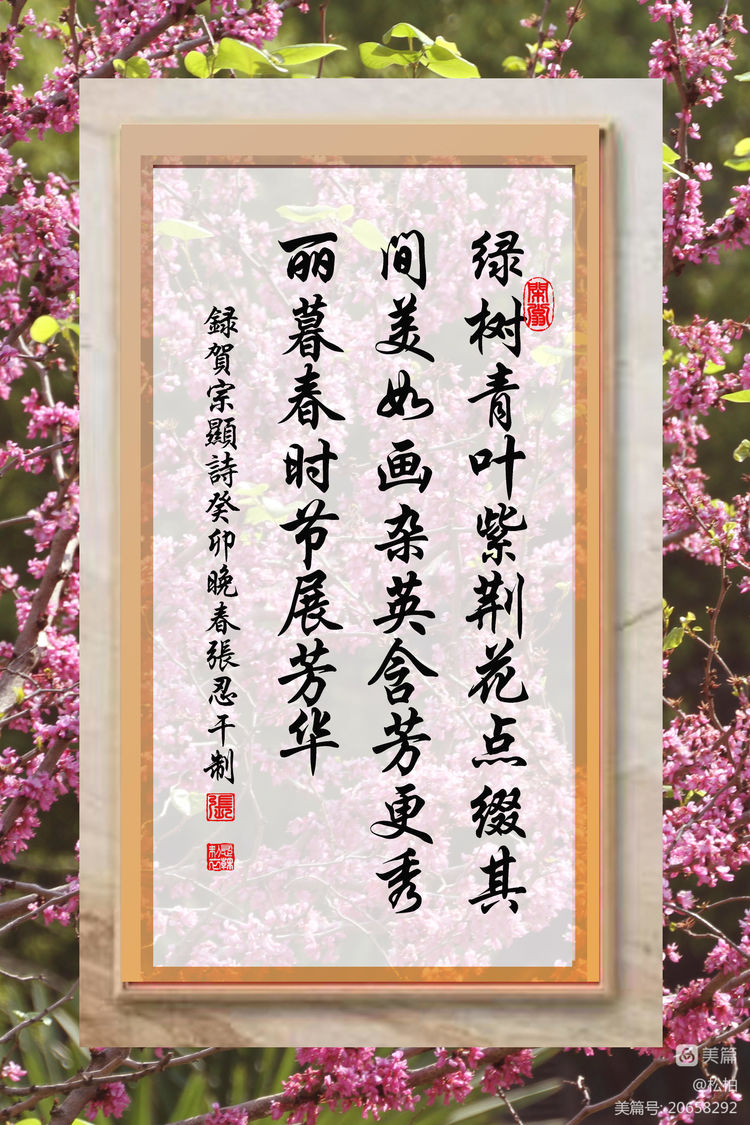 绿树青叶紫荆花点缀其
间美如画杂英含芳更秀
丽暮春时节展芳华
録賀宗顯詩癸卯晚春張忍干制
張
美篇
@松柏
美篇号: 20658292